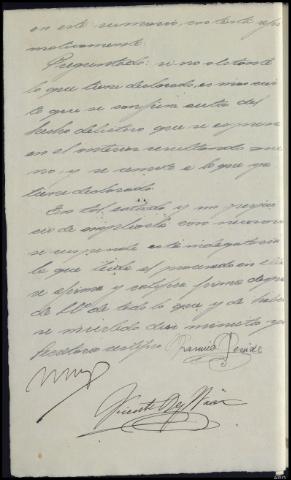 en este sumario, contestó afir
mativamente.
Preguntado: si no obstante
lo que tiene declarado, es mas cier
to que se confiesa autor del
hecho delictivo que se expresa
en el anterior resultando
no, y se remite a lo que ya
tiene declarado.
En tal estado, y sin perjui
cio de ampliarla con necesario
se suspende esta indagatoria
la que leida el procesado en ella
se afirma y ratifica firma despues
de Sª de todo lo que, y de haber
se invertido dos minutos yo
Secretario certifico. Ramiro
Vicente